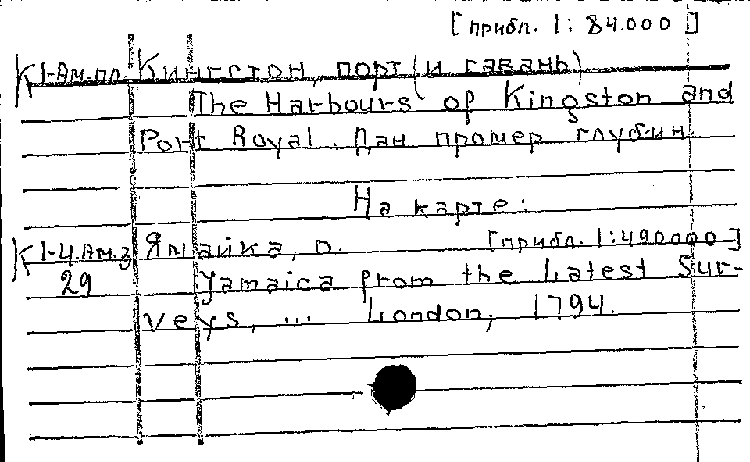 [прибл. 1:84.000]
К1-Ам.пл Кингстон, порт (и гавань)
The Harbours of Kingston and
Port Royal. Дан промер глубин.
На карте:
К1-Ц.Ам.3 Ямайка, о. [прибл. 1:490000]
29 Jamaica from the Latest Sur-
veys, ... London, 1794.